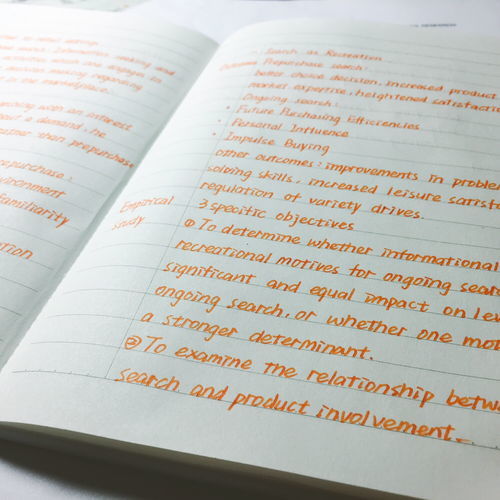 to avoid eating.
Information making and
activities which are engage in
decision making regarding
in the marketplace.
with an interest
about a demand; he
rather than prepurchase
prepurchase:
environment
familiarity
Search as Recreation
Outcome Prepurchase search:
better choice decision, increased product
market expertise, heightened satisfact
Ongoing search:
• Future Purchasing Efficiencies
• Personal Influence
• Impulse Buying
other outcomes: improvements in proble
solving skills, increased leisure satisf
regulation of variety drives.
3 specific objectives
Empirical
study
① To determine whether informational
recreational motives for ongoing sear
significant and equal impact on lev
ongoing search, or whether one mot
a stronger determinant.
② To examine the relationship betwe
search and product involvement.